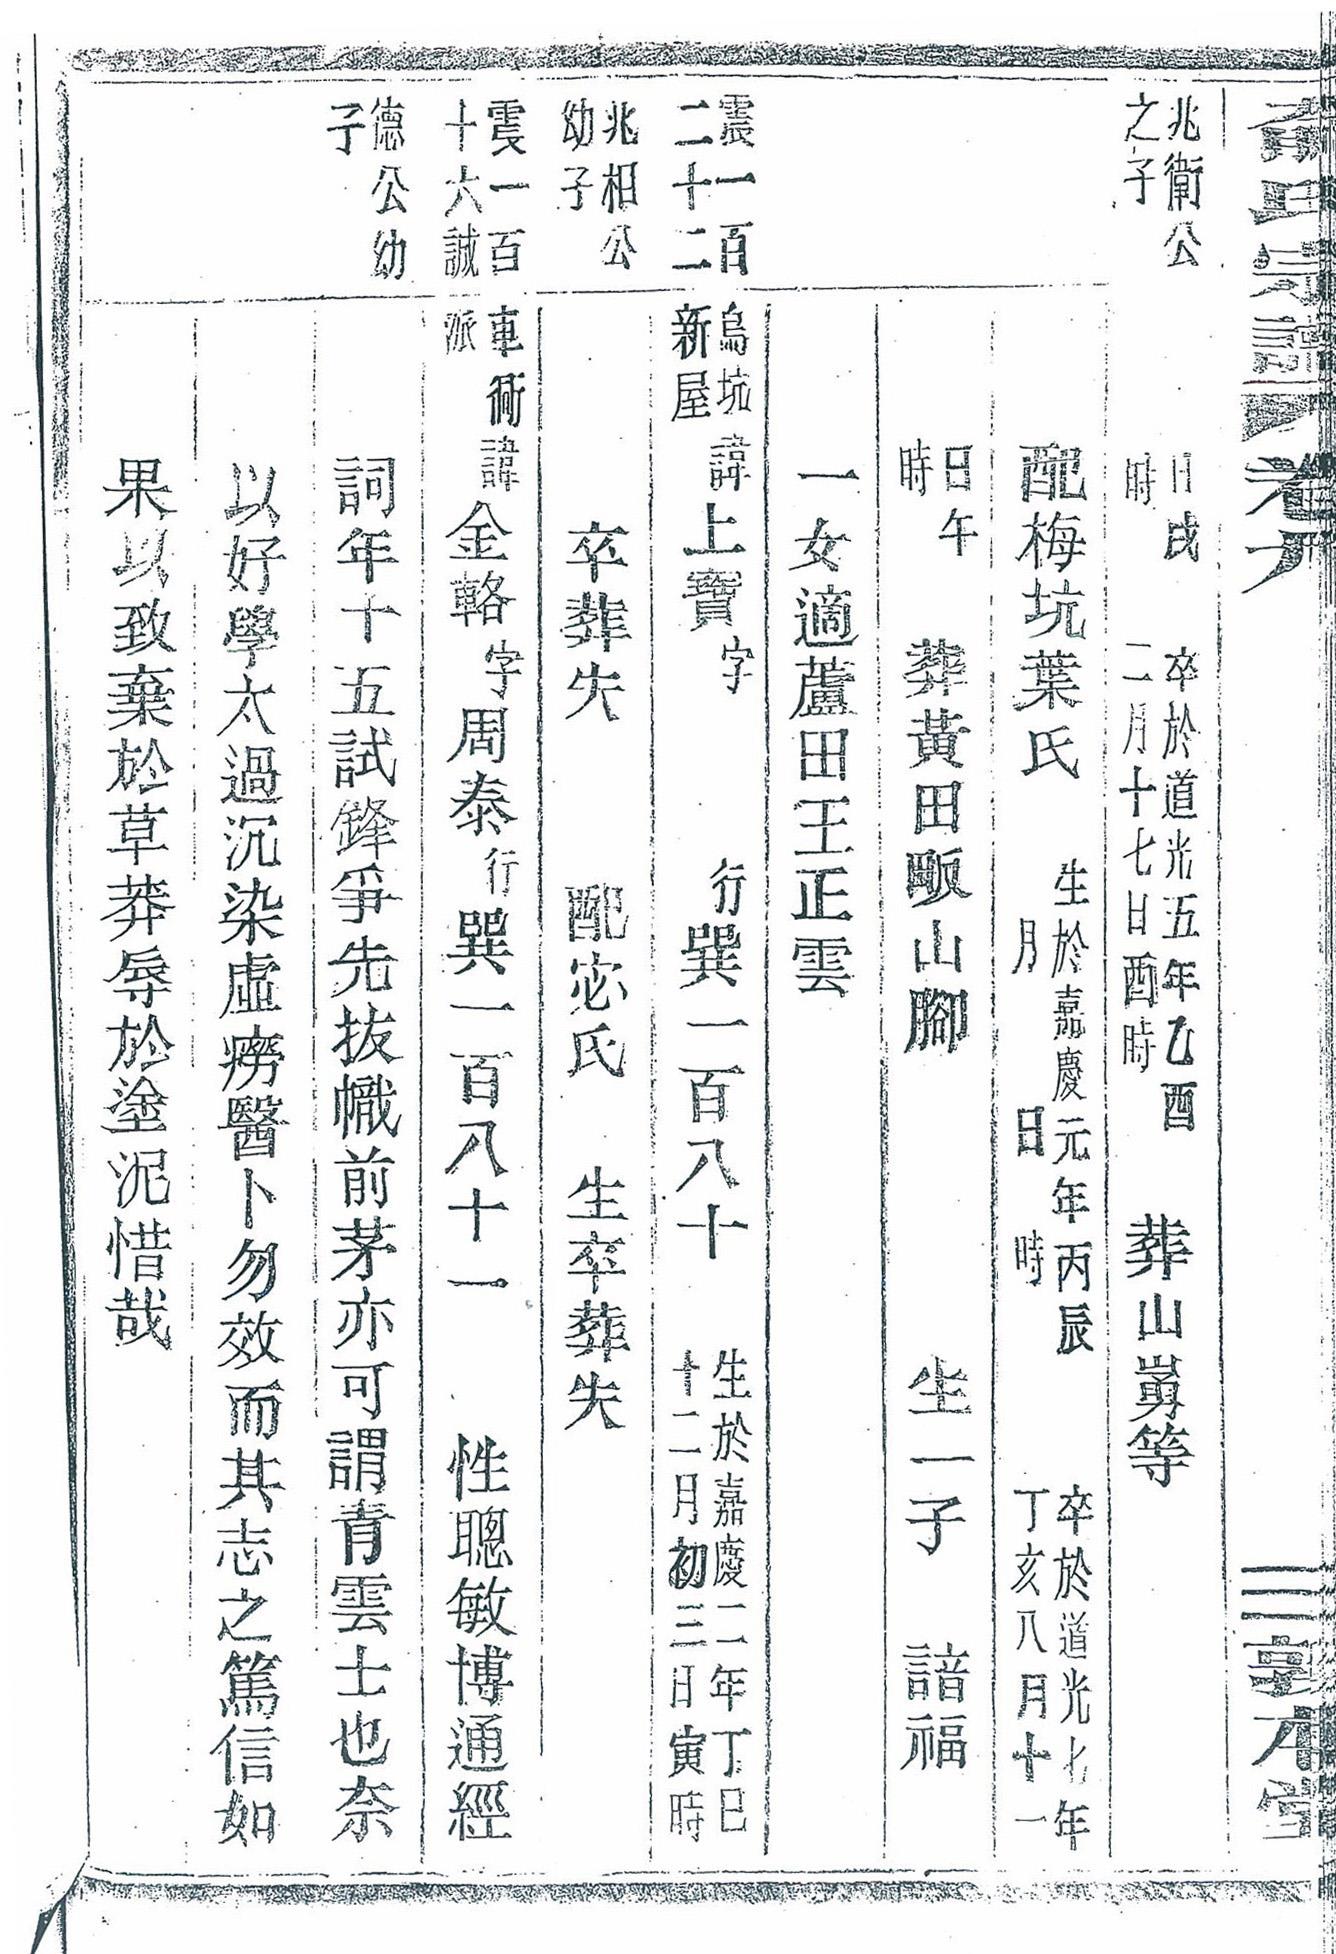 氏宗譜 卷六 三 敦本堂
兆衛公
之子
日戌
時
卒於道光五年乙酉
二月十七日酉時
葬山崀等
配梅坑葉氏
生於嘉慶元年丙辰
月 日 時
卒於道光七年
丁亥八月十一
日午
時
葬黃田畈山腳 生一子 諳福
一女適蘆田王正雲
震一百
二十二
烏坑
新屋
諱上寶字 行巽一百八十
生於嘉慶二年丁巳
十二月初三日寅時
兆相公
幼子
卒葬失 配宓氏 生卒葬失
震一百
十六誠
車衕
派
諱金輅字周泰行巽一百八十一 性聰敏博通經
德公幼
子
詞年十五試鋒爭先拔幟前茅亦可謂青雲士也奈
以好學太過沉染虛癆醫卜勿效而其志之篤信如
果以致棄於草莽辱於塗泥惜哉